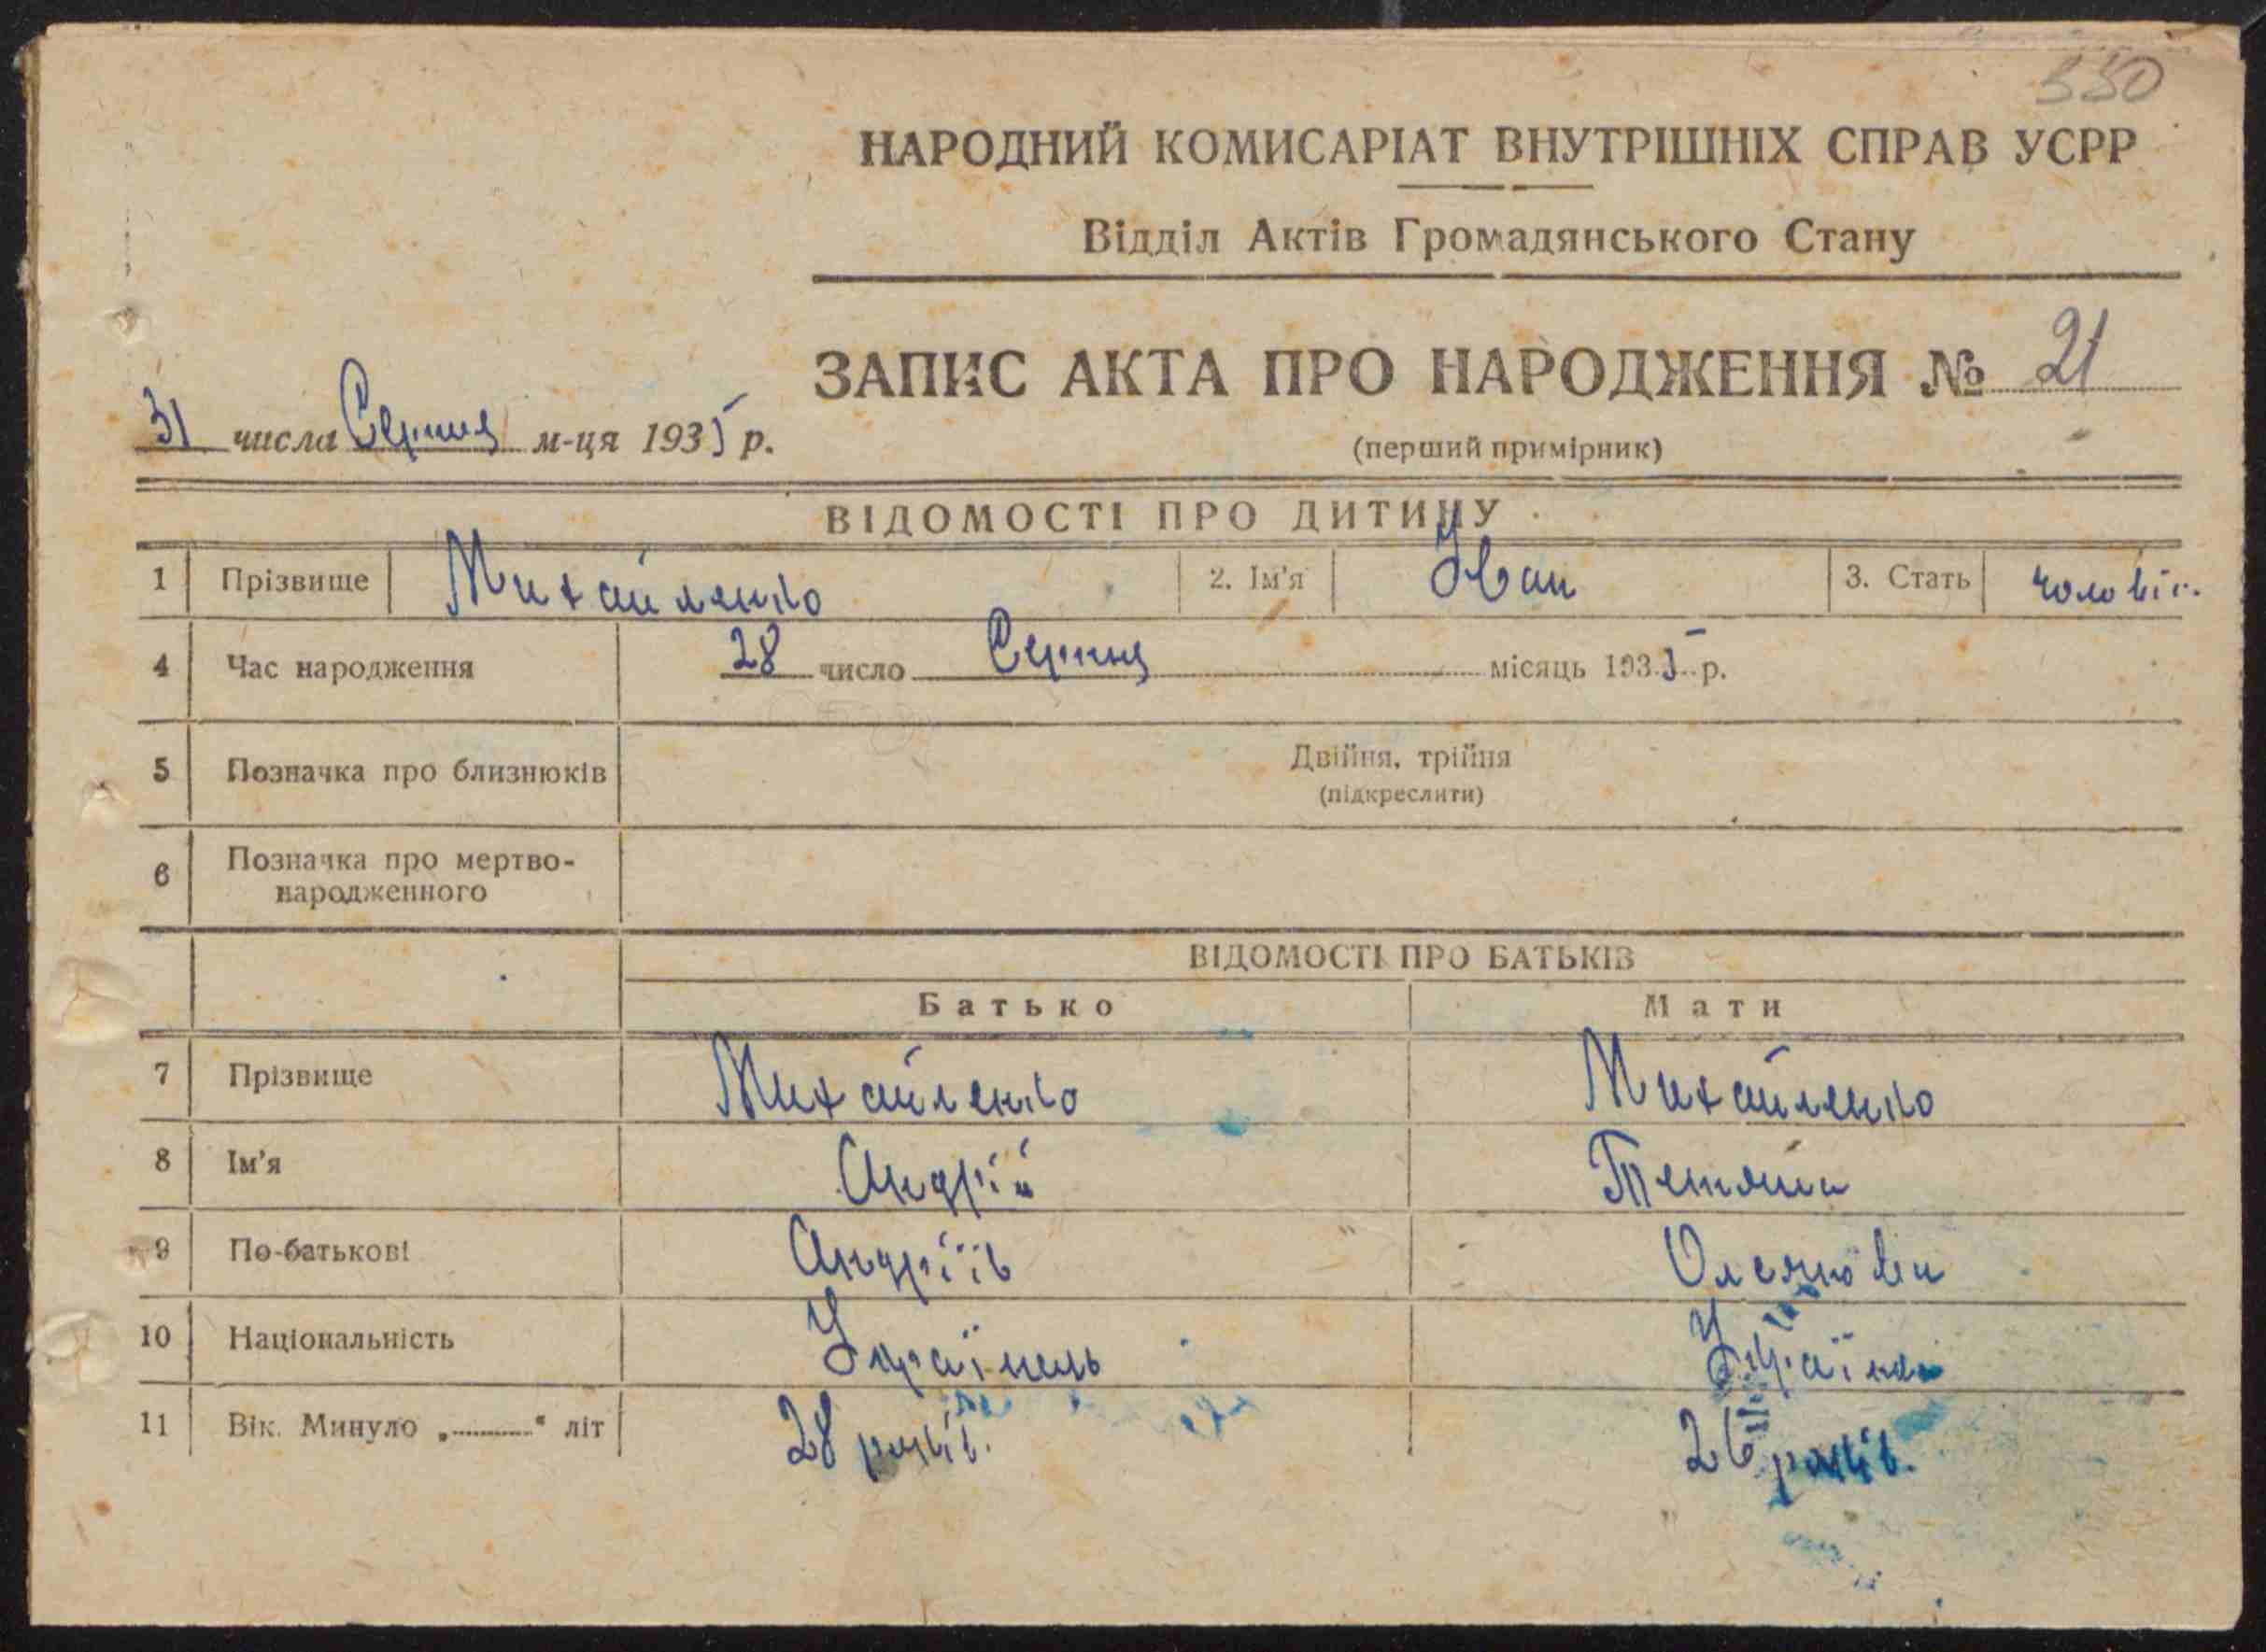 330
НАРОДНИЙ КОМИСАРІАТ ВНУТРІШНІХ СПРАВ УСРР
Відділ Актів Громадянського Стану
ЗАПИС АКТА ПРО НАРОДЖЕННЯ № 21
31 числа Серпня м-ця 1935 р.
(перший примірник)
ВІДОМОСТІ ПРО ДИТИНУ
1 Прізвище Михайленко 2. Ім'я Іван 3. Стать чоловіч.
4 Час народження 28 число Серпня місяць 1935 р.
5 Позначка про близнюків Двійня, трійня
(підкреслити)
6 Позначка про мертво-
народженного
ВІДОМОСТІ ПРО БАТЬКІВ
Батько Мати
7 Прізвище Михайленко Михайленко
8 Ім'я Андрій Тетяна
9 По-батькові Андріїв
10 Національність Українець Українка
11 Вік. Минуло „ “ літ 28 років. 26 років.